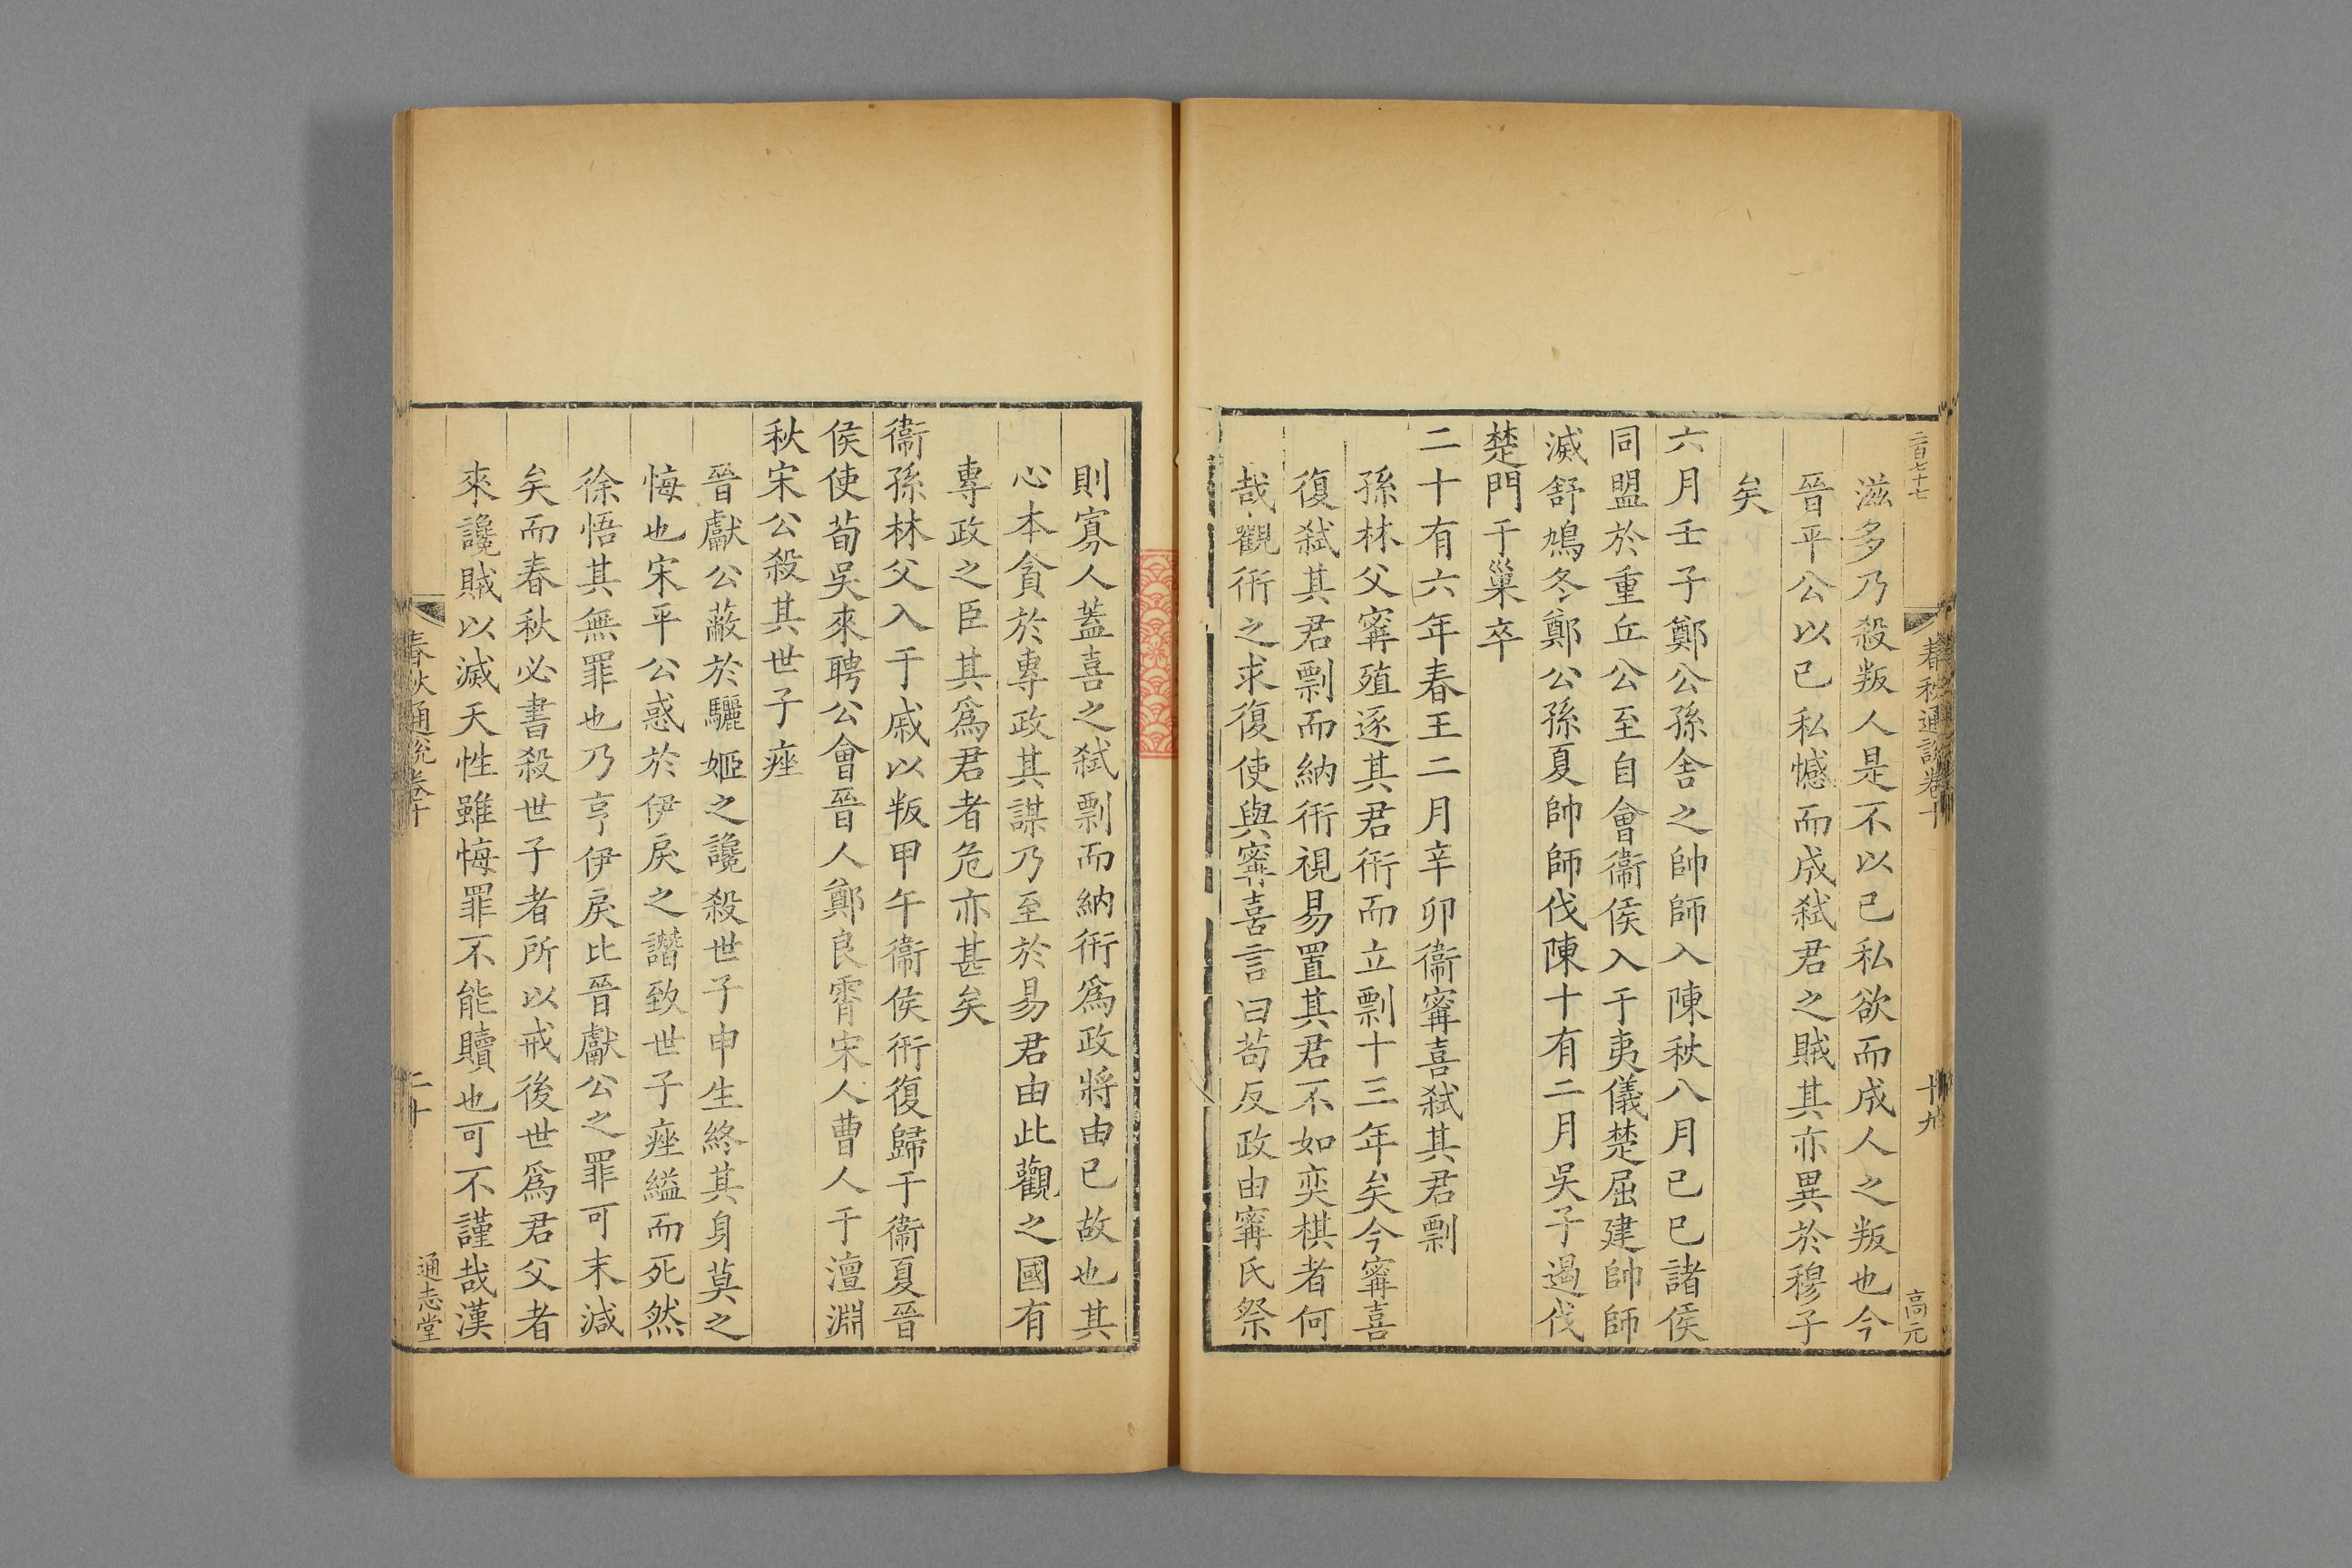 二百七十七
春秋通說卷十
十九
高元
滋多乃殺叛人是不以己私欲而成人之叛也今
晉平公以已私憾而成弒君之賊其亦異於穆子
矣
六月壬子鄭公孫舍之帥師入陳秋八月己巳諸侯
同盟於重丘公至自會衞侯入于夷儀楚屈建帥師
滅舒鳩冬鄭公孫夏帥師伐陳十有二月吳子遏伐
楚門于巢卒
二十有六年春王二月辛卯衞甯喜弒其君剽
孫林父甯殖逐其君衎而立剽十三年矣今甯喜
復弒其君剽而納衎視易置其君不如奕棋者何
哉觀衎之求復使與甯喜言曰苟反政由甯氏祭
則寡人蓋喜之弒剽而納衎爲政將由已故也其
心本貪於專政其謀乃至於易君由此觀之國有
專政之臣其爲君者危亦甚矣
衞孫林父入于戚以叛甲午衞侯衎復歸于衞夏晉
侯使荀吳來聘公會晉人鄭良霄宋人曹人于澶淵
秋宋公殺其世子痤
晉獻公蔽於驪姬之讒殺世子申生終其身莫之
悔也宋平公惑於伊戾之譖致世子痤縊而死然
徐悟其無罪也乃亨伊戾比晉獻公之罪可末減
矣而春秋必書殺世子者所以戒後世爲君父者
來讒賊以滅天性雖悔罪不能贖也可不謹哉漢
春秋通說卷十
二十
通志堂